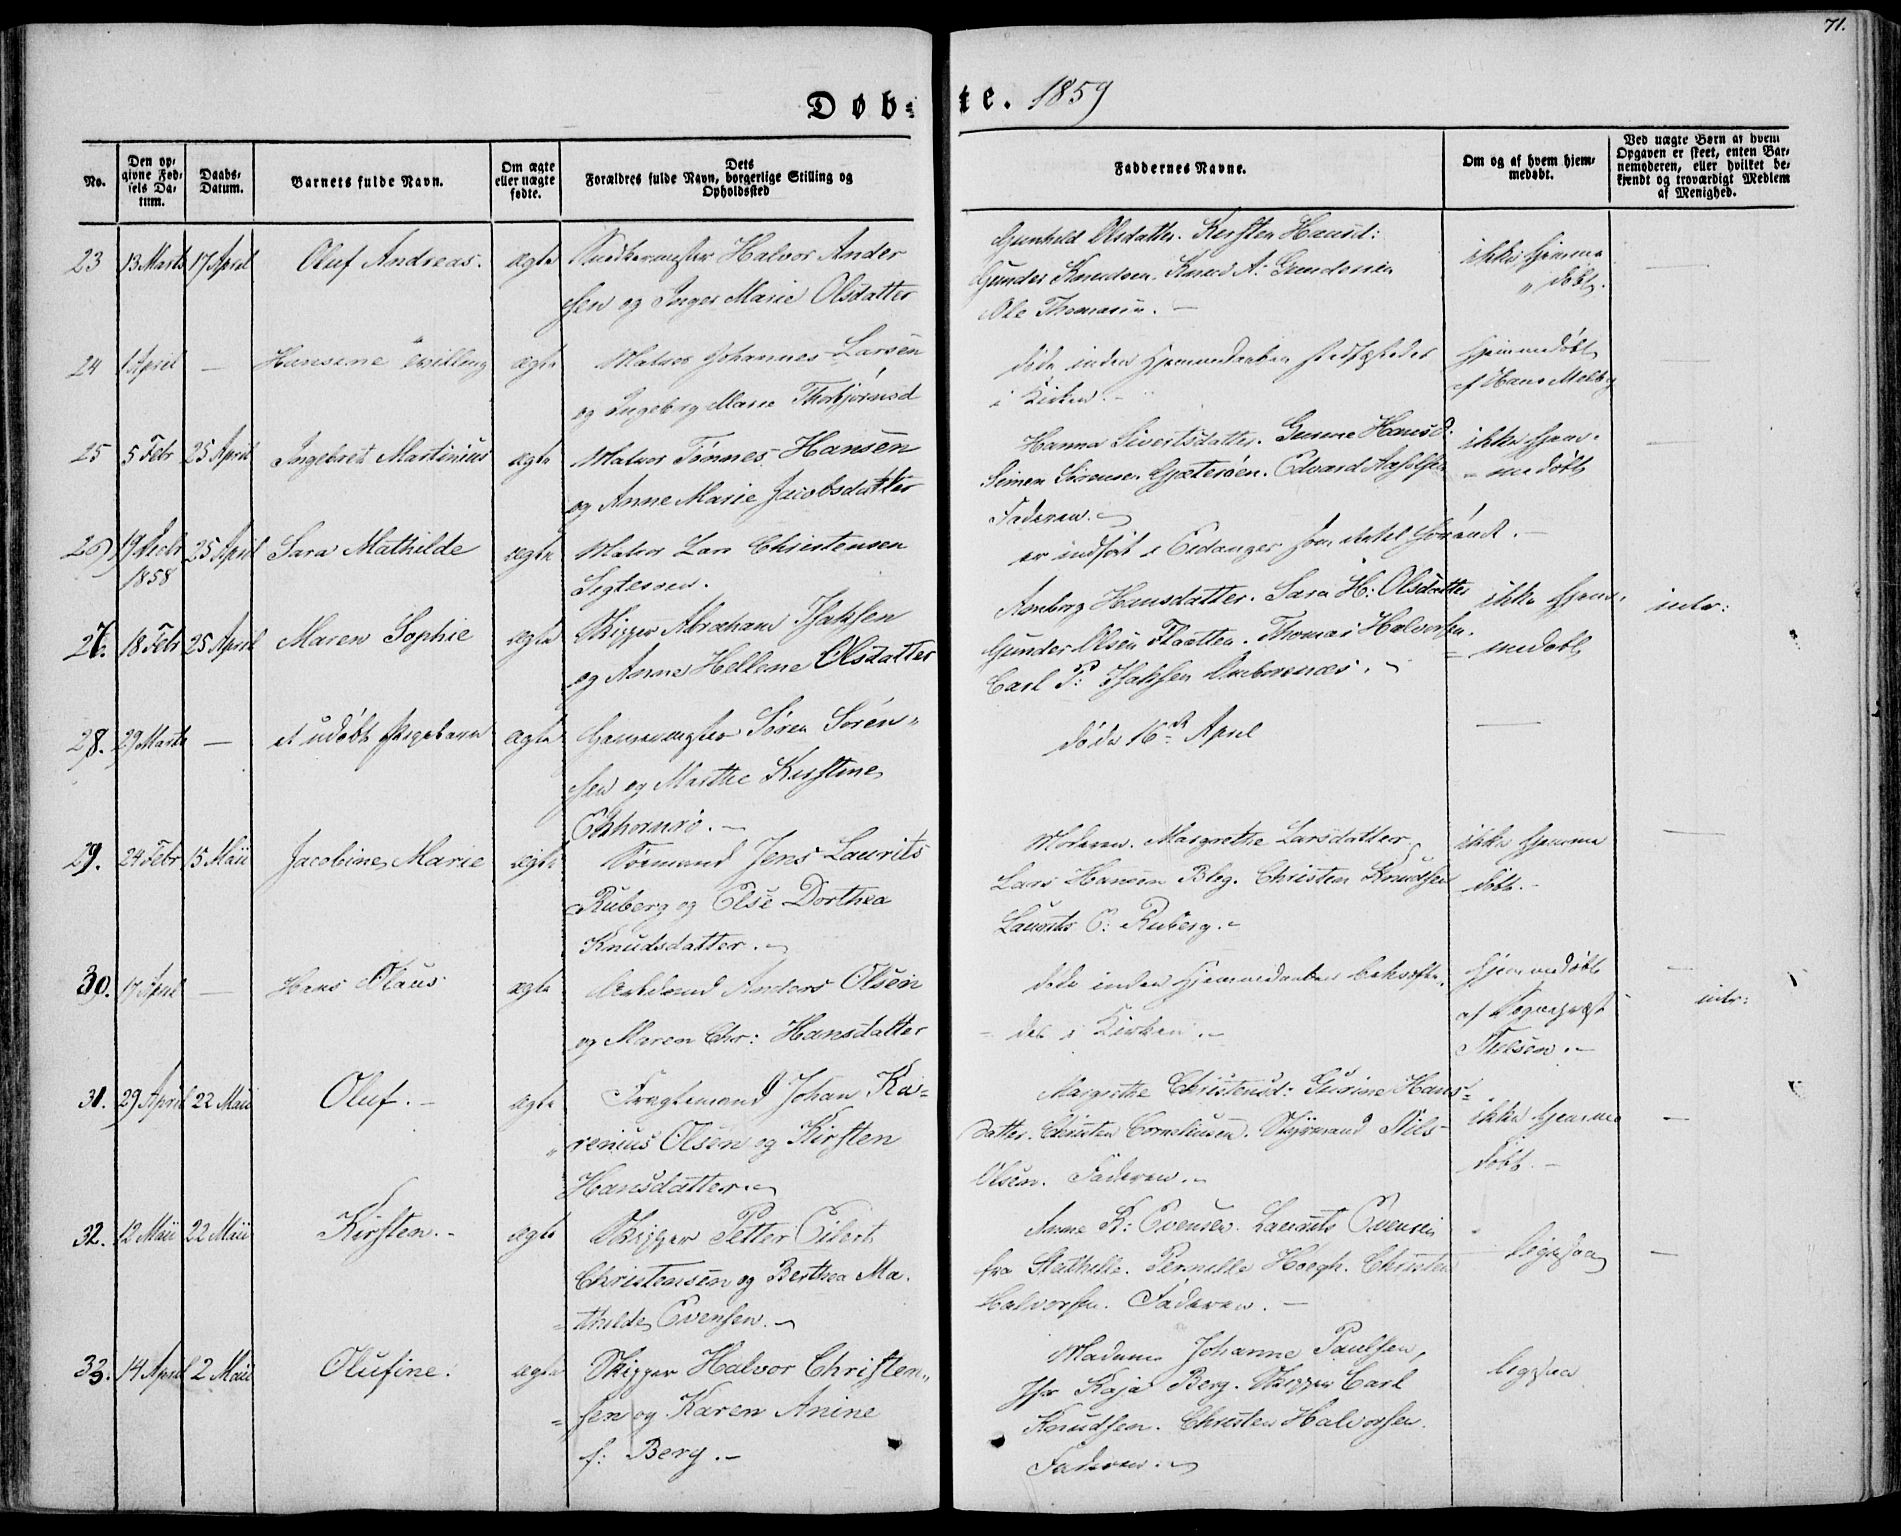 71.
Døb= te. 1859
No.
Den op-
givne Fød-
sels Da-
tum.
Daabs-
Datum.
Barnets fulde Navn.
Om ægte
eller uægte
fødte.
Dets
Forældres fulde Navn, borgerlige Stilling og
Opholdssted
Faddernes Navne.
Om og af hvem hjem-
medøbt.
Ved uægte Børn af hvem
Opgaven er skeet, enten Bar-
nemoderen, eller hvilket be-
kjendt og troværdigt Medlem
af Menighed.
23 13 Marts 17 April Oluf Andreas. ægte Snedkermester Halvor Ander
sen og Inger Marie Olsdatter
Gunhild Olsdatter. Kirsten Hansd:
Gunder Knudsen. Knud A. Gundersen
Ole Thomasen. —
ikke hjemme
„ døbt.
24 1 April — Hansine Tvilling ægte Matros Johannes Larsen
og Ingeborg Marie Thorbjørnsd
døde inden Hjemmedaaben stadfæstedes
i Kirken. —
Hjemmedøbt
af Hans Melby
25 5 Febr 25 April Ingebret Martinius ægte Matros Tønnes Hansen
og Anne Marie Jacobsdatter
Hanna Sivertsdatter. Gurine Hansd.
Simen Sørensen Gjeterøen. Edvard
Faderen.
ikke hjem-
= medøbt
26 19 1858 25 April Sara Mathilde ægte Matros Lars Christensen
Sigtesøen.
er indført i Eidanger
27. 18 Febr 25 April Maren Sophie ægte Skipper Abraham Isaksen
og Anne Hellene Olsdatter
Anneborg Hansdatter. Sara H: Olsdatter
Gunder Olsen Flaatten. Thomas Halvorsen.
Carl P: Isaksen
ikke hjem-
= medøbt
intr:
28. 29 Marts — et udøbt Pigebarn ægte Søren Søren„
sen og Marthe Kirstine
døde 16de April
29. 24 Febr 15 Maii Jacobine Marie ægte Sømand Jens Laurits
Ruberg og Else Dorthea
Knudsdatter.
Moderen. Margrethe Larsdatter
Lars Hansen Bleg. Christen Knudsen
Laurits C: Ruberg.
ikke hjemme
døbt.
30. 17 April — Hans Olaus ægte Anders Olsen
og Maren Chr: Hansdatter
døde inden Hjemmedaaben bekræfte„
= des i Kirken.
Hjemmedøbt
af Sognepræst
Nielsen.
intr:
31. 29 April 22 Maii Oluf. — ægte Fragtemand Johan Ka-
„renius Olsen og Kirsten
Hansdatter
Margrethe Christensd: Gurine Hans=
datter. Christen Corneliussen. Styrmand Nils
Olsen. Faderen.
ikke hjemme
døbt. —
32. 12 Maii 22 Maii Kirsten. — ægte Skipper Petter Eilert
Christensen og Berthea Ma.
= thilde Evensen.
Anne K: Evensen. Laurits Evensen
fra Stathelle. Pernille Høegh. Christen
Halvorsen. Faderen. —
ligesaa
33. 14 April 2 Maii Olufine. ægte Skipper Halvor Christen„
= sen og Karen Anine
f: Berg. —
Madame Johanne Paulsen,
Jfr Kaja Berg. Skipper Carl
Knudsen. Christen Halvorsen.
Faderen.
ligesaa